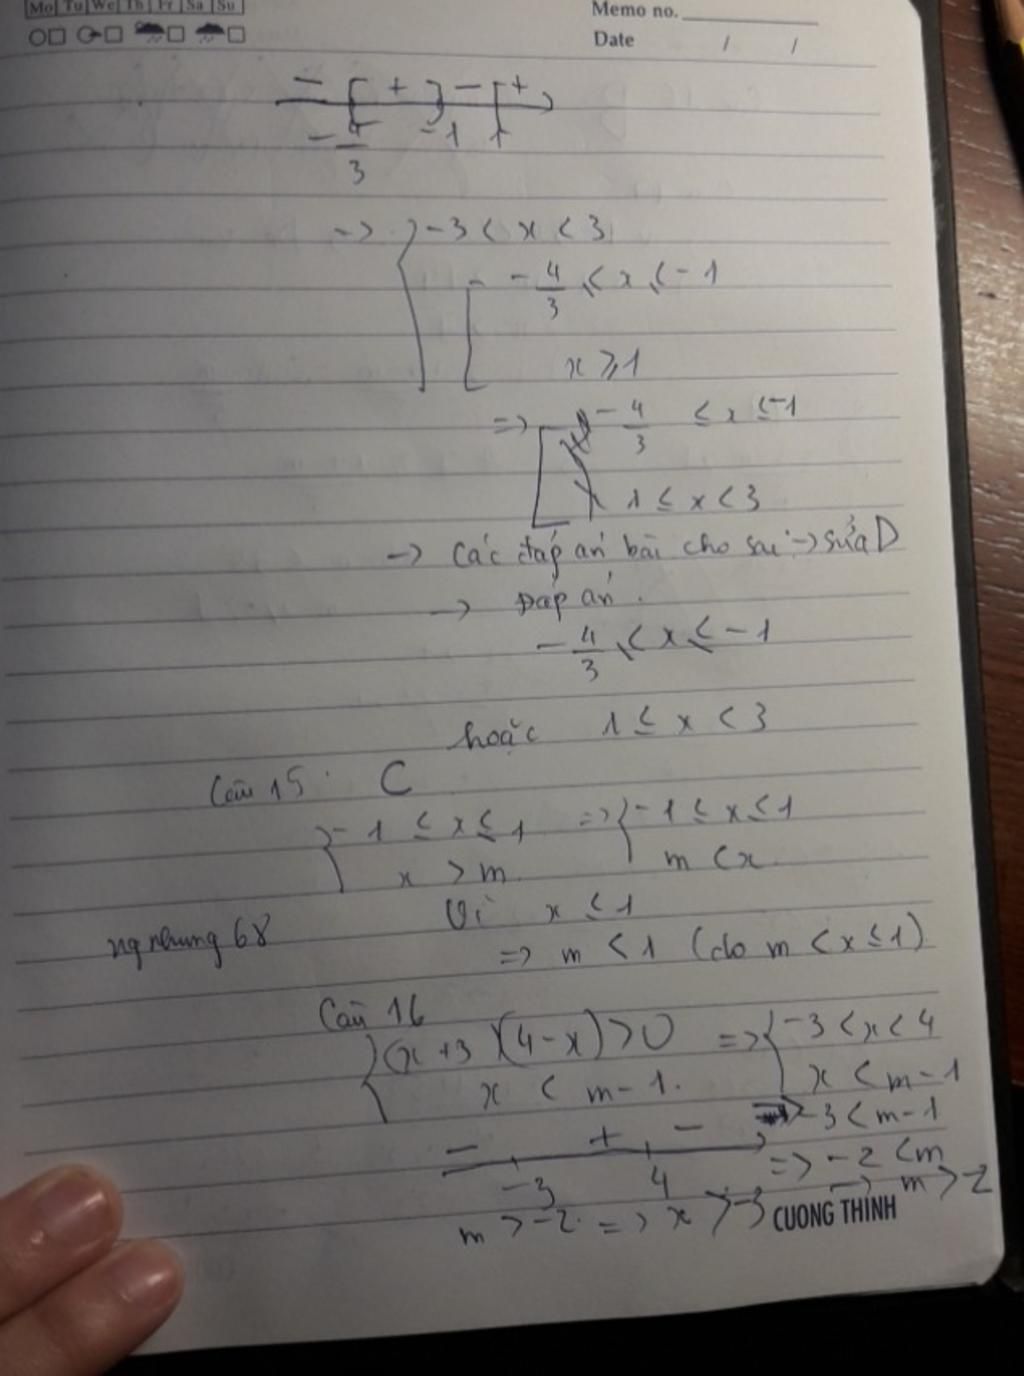 Mo Tu We Th Fr Sa Su
Memo no.
Date / /
− [ + ] − [ +
−4/3 −1 1
=> { −3 < x < 3
[ −4/3 ≤ x ≤ −1
x ≥ 1
=> [ −4/3 ≤ x ≤ −1
1 ≤ x < 3
-> Các đáp án bài cho sai -> sửa D
-> Đáp án.
−4/3 ≤ x ≤ −1
hoặc 1 ≤ x < 3
Câu 15. C
{ −1 ≤ x ≤ 1 => { −1 ≤ x ≤ 1
x > m m < x
Vì x ≤ 1
ng nhung 68
=> m < 1 (do m < x ≤ 1)
Câu 16
{ (x+3)(4−x) > 0 => { −3 < x < 4
x < m − 1. x < m − 1
=> −3 < m − 1
− + −
=> −2 < m
−3 4
-> m > −2
m > −2 => x > −3
CUONG THINH